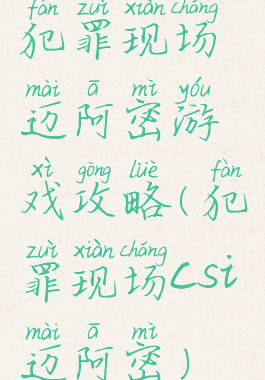 fàn zuì xiàn chǎng
犯罪现场
mài ā mì yóu
迈阿密游
xì gōng lüè fàn
戏攻略(犯
zuì xiàn chǎng
罪现场csi
mài ā mì
迈阿密)